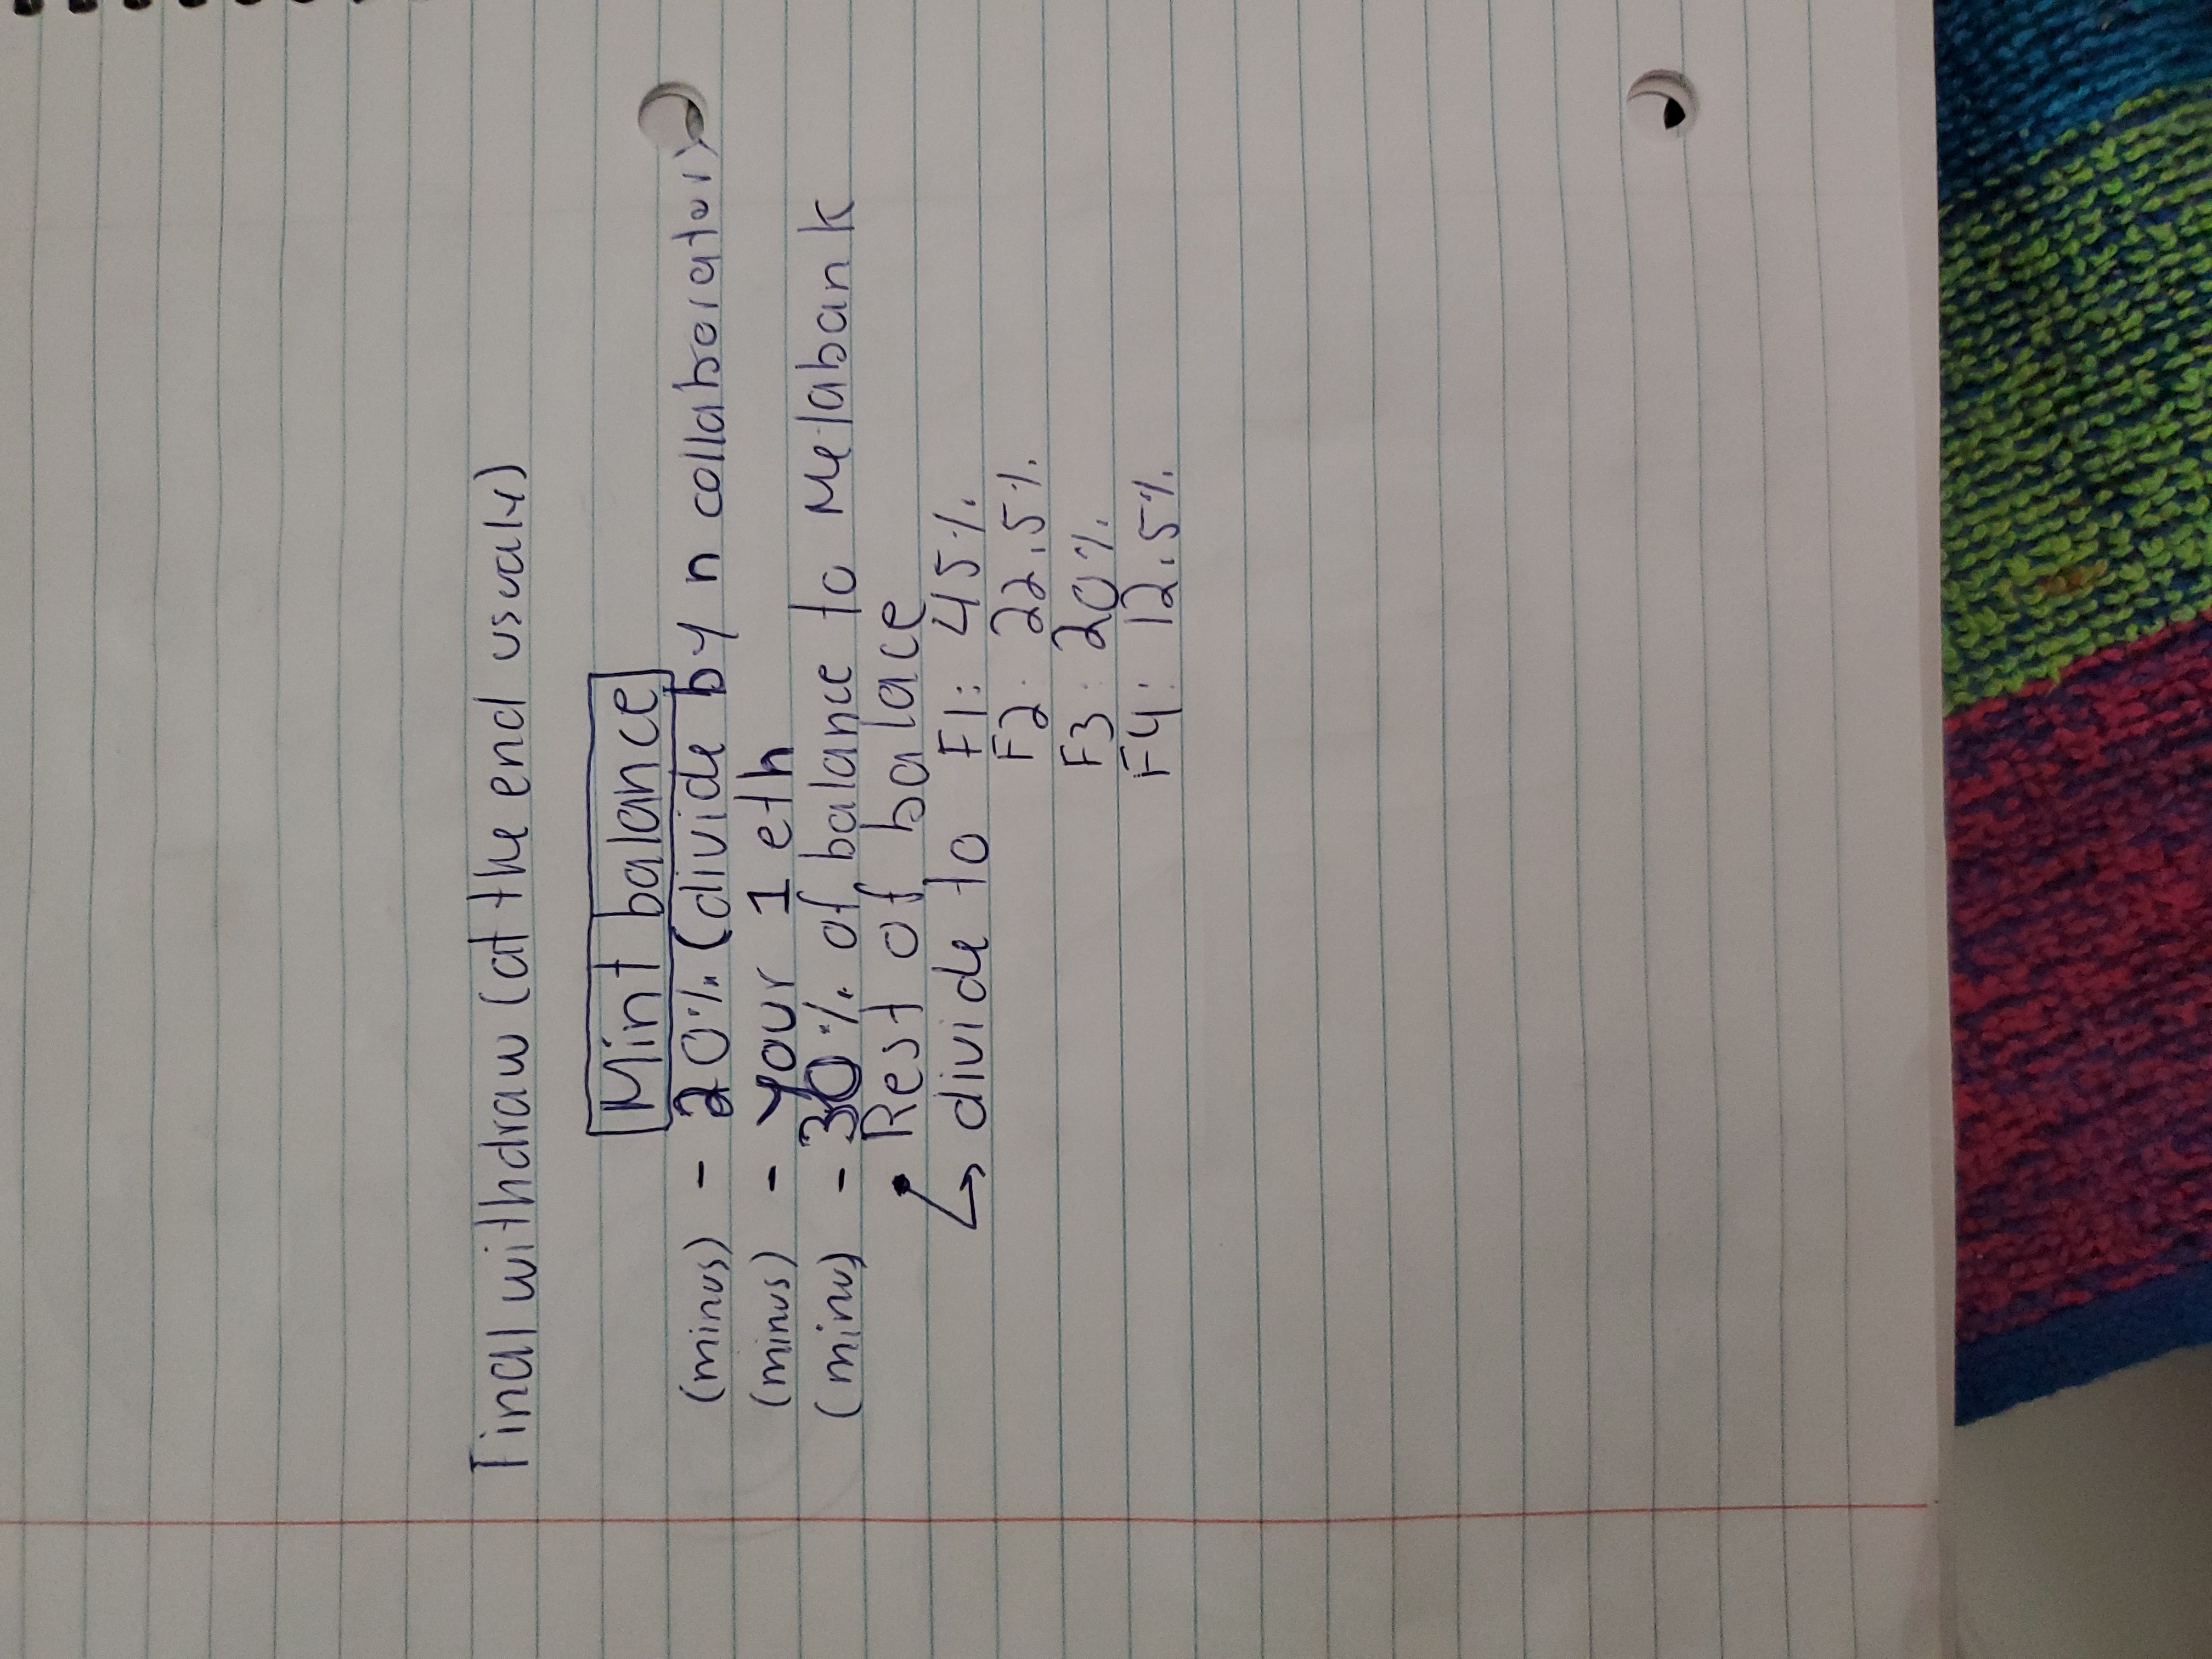 Final withdraw (at the end usualy)
Mint balance
(minus) - 20% (divide by n collaborator)
(minus) - your 1 eth
(minus) - 30% of balance to Metabank
• Rest of balace
↳ divide to F1: 45%
F2: 22.5%
F3: 20%
F4: 12.5%